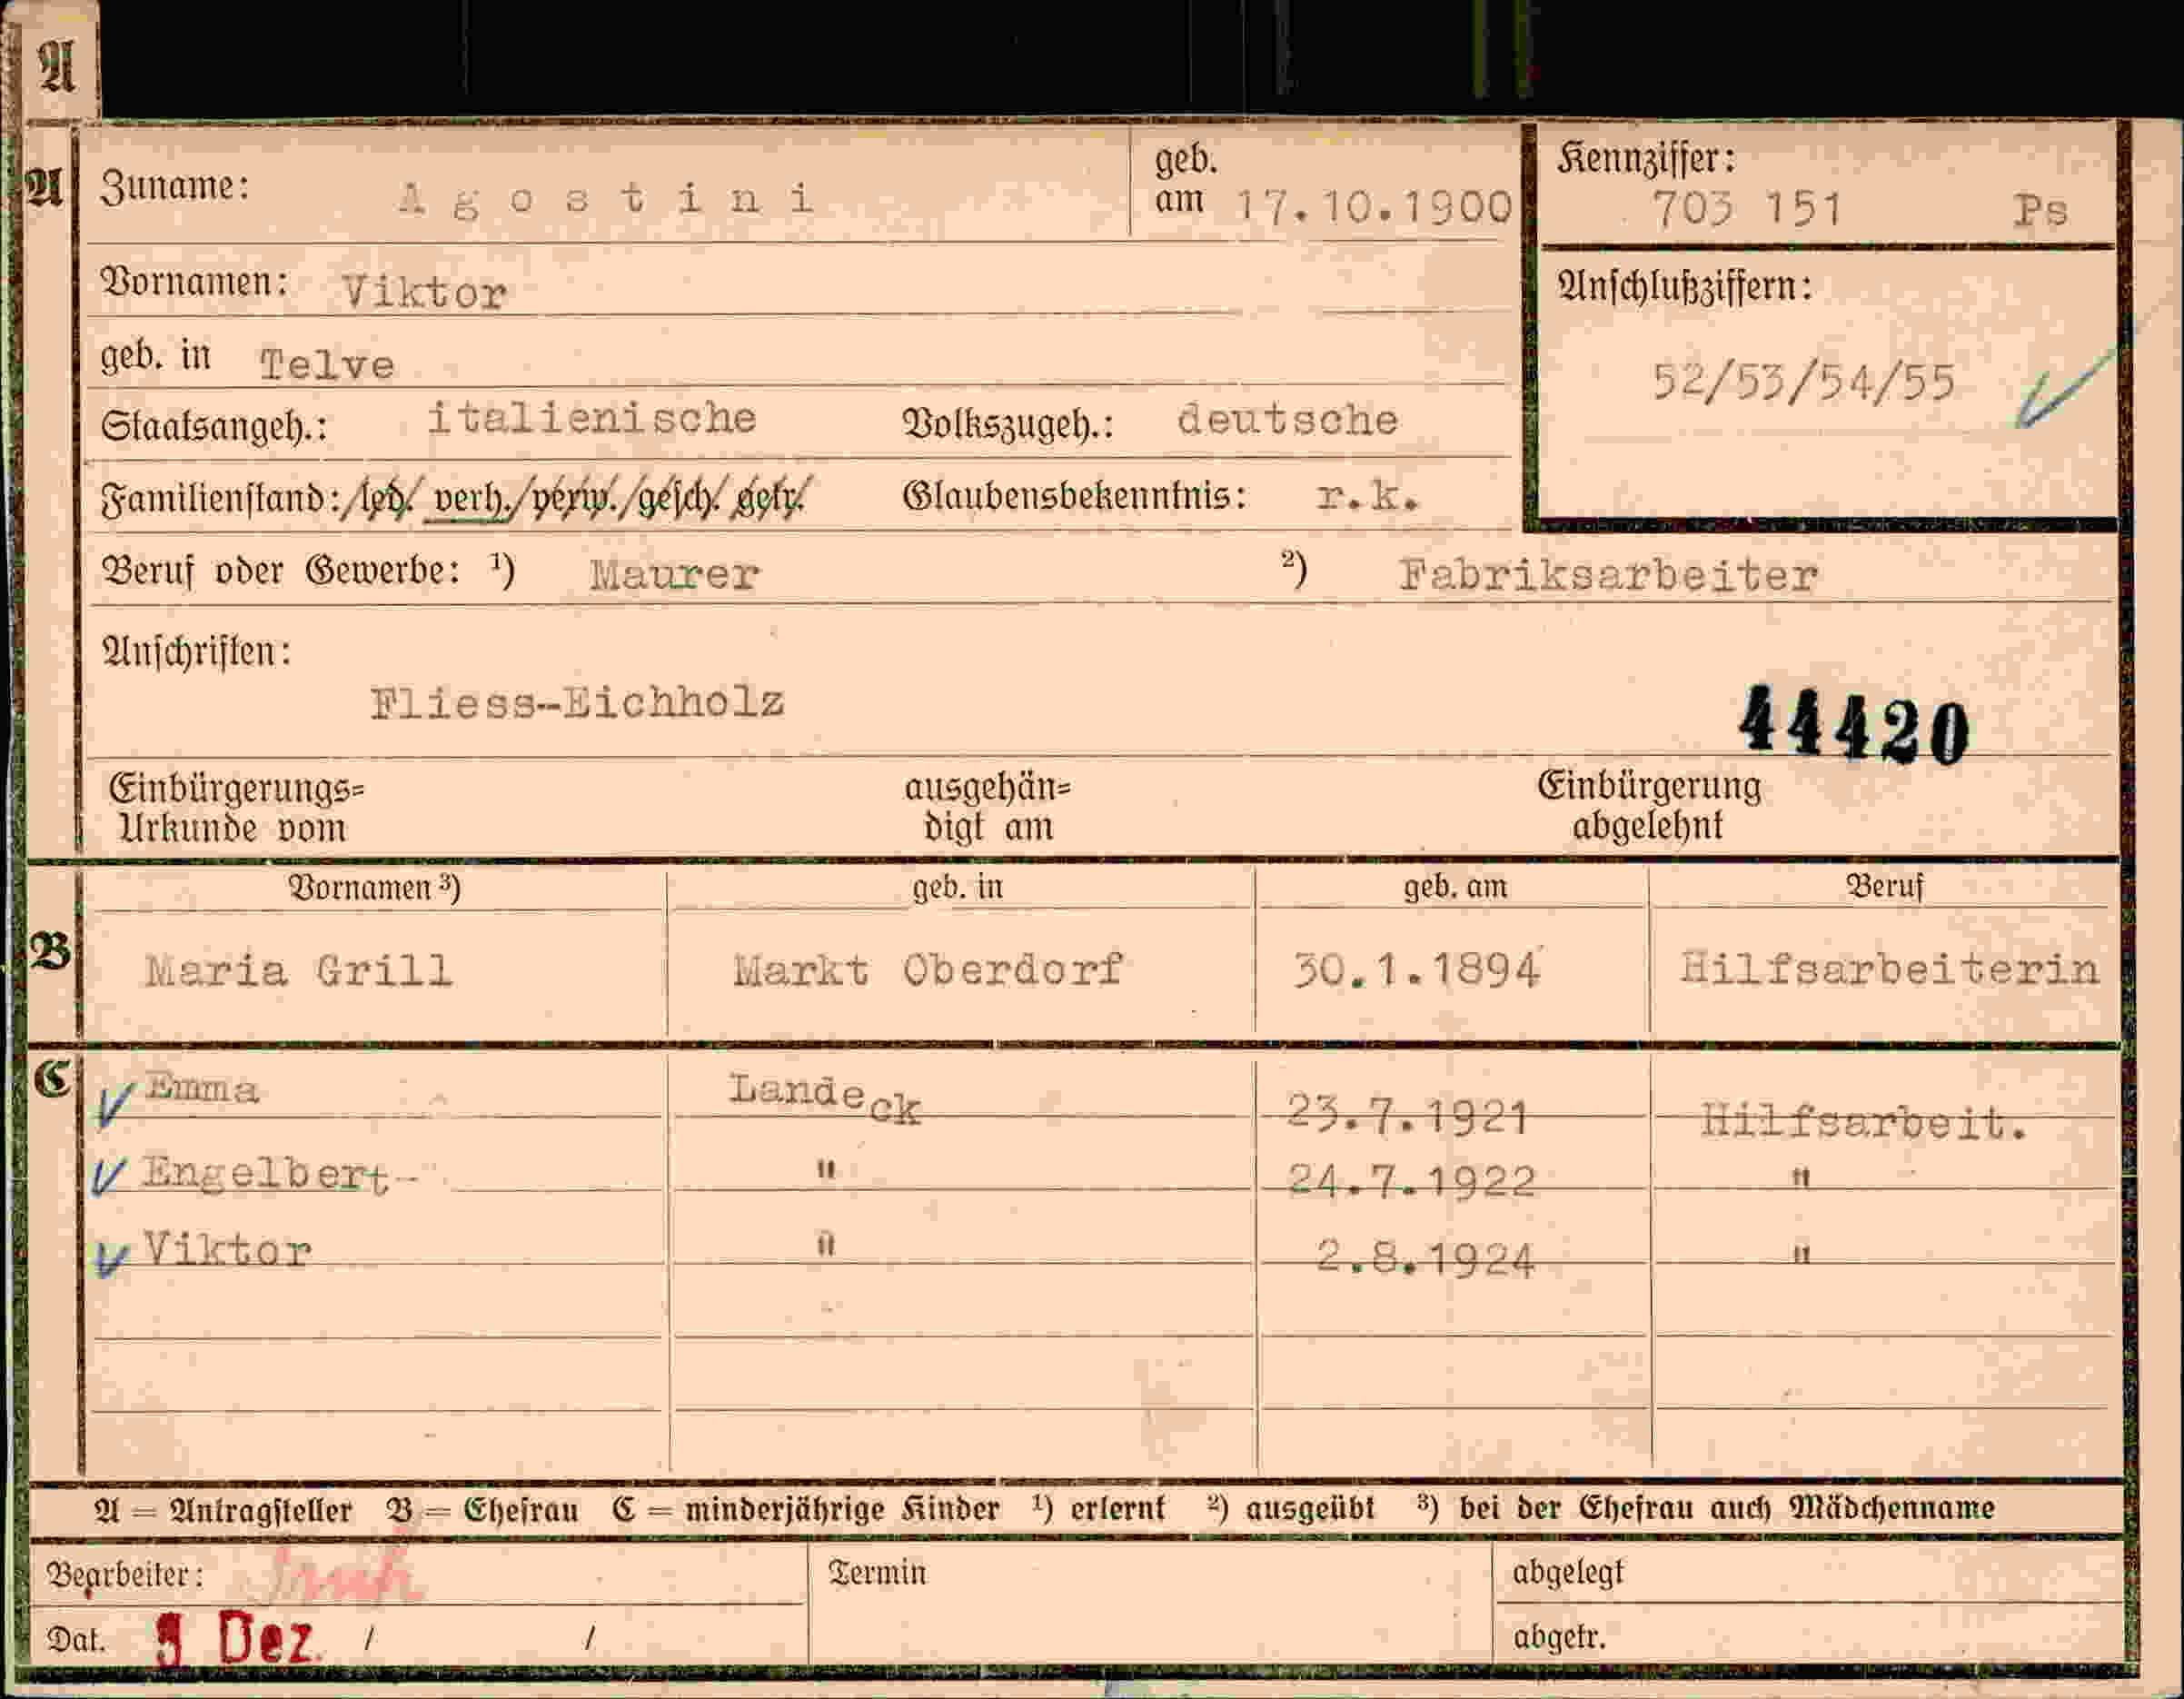 A
A Zuname: Agostini geb. am 17.10.1900 Kennziffer: 703 151 Ps
Vornamen: Viktor
Anschlußziffern:
geb. in Telve
52/53/54/55
Staatsangeh.: italienische Volkszugeh.: deutsche
Familienstand: /led/. verh./verw./gesch/. getr/. Glaubensbekenntnis: r.k.
Beruf oder Gewerbe: ¹) Maurer ²) Fabriksarbeiter
Anschriften:
Fliess--Eichholz
44420
Einbürgerungs= ausgehän= Einbürgerung
Urkunde vom digt am abgelehnt
Vornamen ³) geb. in geb. am Beruf
B Maria Grill Markt Oberdorf 30.1.1894 Hilfsarbeiterin
C Emma Landeck 23.7.1921 Hilfsarbeit.
Engelbert- " 24.7.1922 "
Viktor " 2.8.1924 "
A = Antragsteller B = Ehefrau C = minderjährige Kinder ¹) erlernt ²) ausgeübt ³) bei der Ehefrau auch Mädchenname
Bearbeiter: Termin abgelegt
Dat. 9 Dez. / / abgetr.